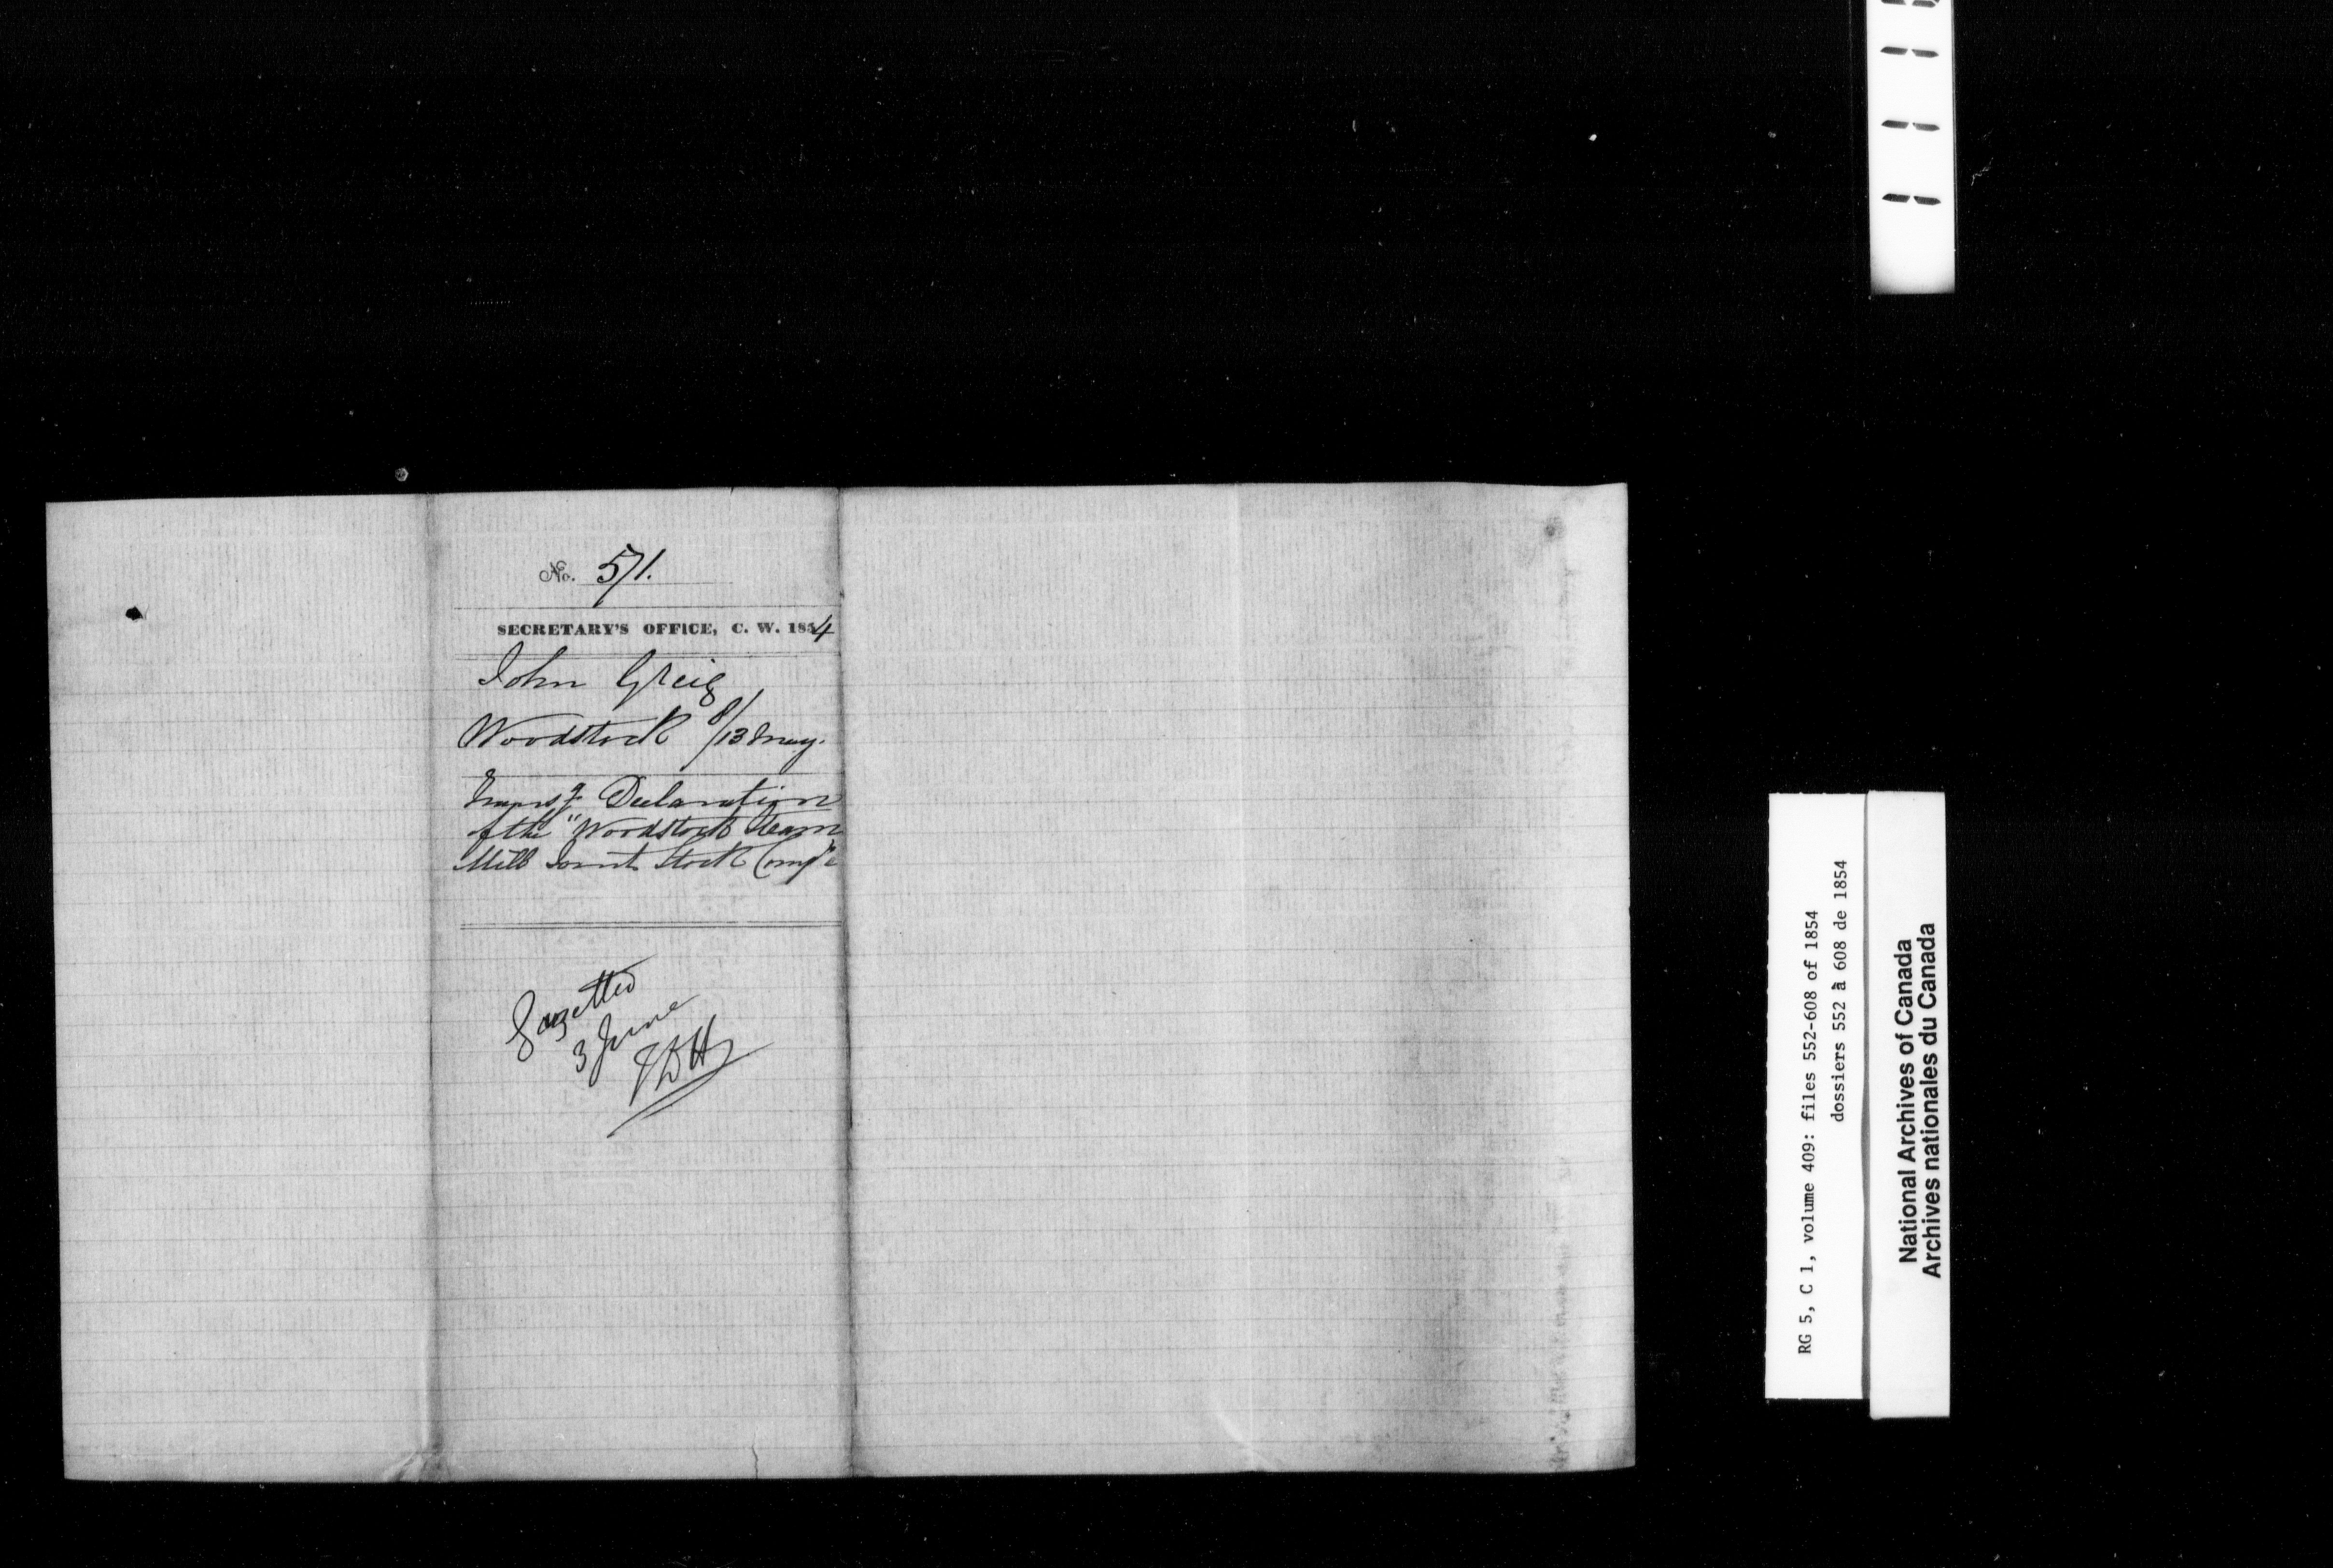 No. 571.
SECRETARY'S OFFICE, C. W. 1854
John Greig
Woodstock 8/13 May.
Declaration
of the "Woodstock Steam
Mill Joint Stock Comp
Gazetted
3 June
RG 5, C 1, volume 409: files 552-608 of 1854
dossiers 552 à 608 de 1854
National Archives of Canada
Archives nationales du Canada